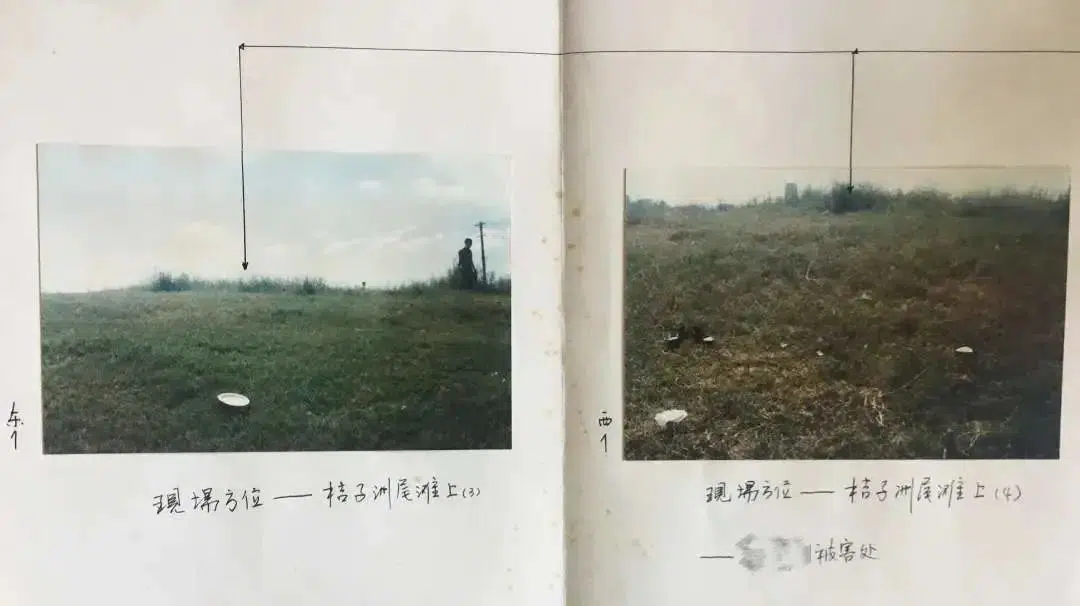 东
西
現場方位——桔子洲尾滩上(3)
現場方位——桔子洲尾滩上(4)
——被害处